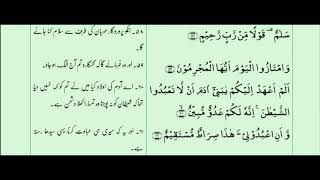 سَلٰمٌ ۟ قَوْلًا مِّنْ رَّبٍّ رَّحِیْمٍ ﴿۵۸﴾
وَ امْتَازُوا الْیَوْمَ اَیُّهَا الْمُجْرِمُوْنَ ﴿۵۹﴾
اَلَمْ اَعْهَدْ اِلَیْكُمْ یٰبَنِیْۤ اٰدَمَ اَنْ لَّا تَعْبُدُوا
الشَّیْطٰنَ ۚ اِنَّهٗ لَكُمْ عَدُوٌّ مُّبِیْنٌ ﴿۶۰﴾
وَّ اَنِ اعْبُدُوْنِیْ ؕ هٰذَا صِرَاطٌ مُّسْتَقِیْمٌ ﴿۶۱﴾
۵۸۔ انکو پروردگار مہربان کی طرف سے سلام کہا جائے
گا۔
۵۹۔ اور وہ فرمائے گا کہ گنہگارو تم آج الگ ہو جاؤ۔
۶۰۔ اے آدم کی اولاد کیا میں نے تم کو کہہ نہیں دیا
تھا کہ شیطان کو نہ پوجنا وہ تمہارا کھلا دشمن ہے۔
۶۱۔ اور یہ کہ میری ہی عبادت کرنا یہی سیدھا رستہ
ہے۔